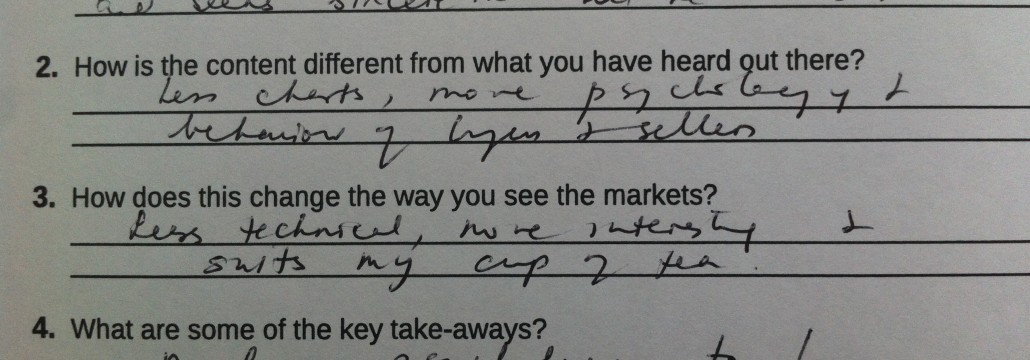 and seems
2. How is the content different from what you have heard out there?
Less charts, more psychology &
behaviour of buyers & sellers
3. How does this change the way you see the markets?
Less technical, more interesting &
suits my cup of tea.
4. What are some of the key take-aways?